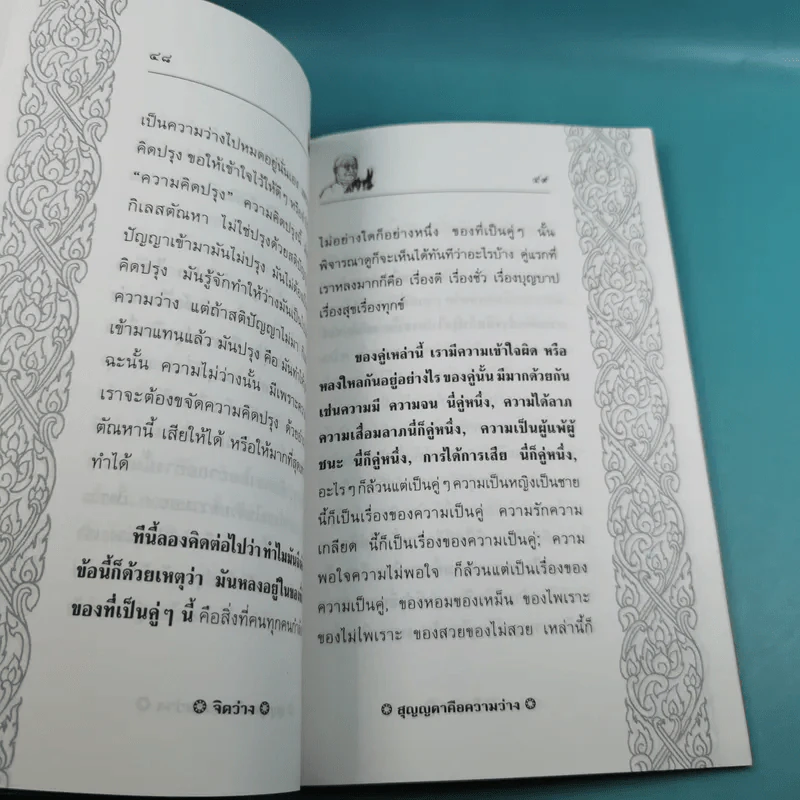 ๔๘
เป็นความว่างไปหมดอยู่นั่นเสมอ
คิดปรุง ขอให้เข้าใจไว้ให้ดีๆ
“ความคิดปรุง” ความคิดปรุงนี้
กิเลสตัณหา ไม่ใช่ปรุงด้วยสติปัญญา
ปัญญาเข้ามามันไม่ปรุง
คิดปรุง มันรู้จักทำให้ว่างมันเป็น
ความว่าง แต่ถ้าสติปัญญาไม่มา
เข้ามาแทนแล้ว มันปรุง คือ
ฉะนั้น ความไม่ว่างนั้น มีเพราะ
เราจะต้องขจัดความคิดปรุง
ตัณหานี้ เสียให้ได้ หรือให้มากที่สุด
ทำได้
ทีนี้ลองคิดต่อไปว่า ทำไม
ข้อนี้ก็ด้วยเหตุว่า มันหลงอยู่ใน
ของที่เป็นคู่ๆ นี้ คือสิ่งที่คนทุกคน
จิตว่าง
๔๙
ไม่อย่างใดก็อย่างหนึ่ง ของที่เป็นคู่ๆ นั้น
พิจารณาดูก็จะเห็นได้ทันทีว่าอะไรบ้าง คู่แรกที่
เราหลงมากก็คือ เรื่องดี เรื่องชั่ว เรื่องบุญบาป
เรื่องสุขเรื่องทุกข์
ของคู่เหล่านี้ เรามีความเข้าใจผิด หรือ
หลงใหลกันอยู่อย่างไร ของคู่นั้น มีมากด้วยกัน
เช่นความมี ความจน นี่คู่หนึ่ง, ความได้ลาภ
ความเสื่อมลาภนี้ก็คู่หนึ่ง, ความเป็นผู้แพ้ผู้
ชนะ นี้ก็คู่หนึ่ง, การได้การเสีย นี้ก็คู่หนึ่ง,
อะไรๆ ก็ล้วนแต่เป็นคู่ๆ ความเป็นหญิงเป็นชาย
นี้ก็เป็นเรื่องของความเป็นคู่ ความรักความ
เกลียด นี้ก็เป็นเรื่องของความเป็นคู่; ความ
พอใจความไม่พอใจ ก็ล้วนแต่เป็นเรื่องของ
ความเป็นคู่, ของหอมของเหม็น ของไพเราะ
ของไม่ไพเราะ ของสวยของไม่สวย เหล่านี้ก็
สุญญตาคือความว่าง